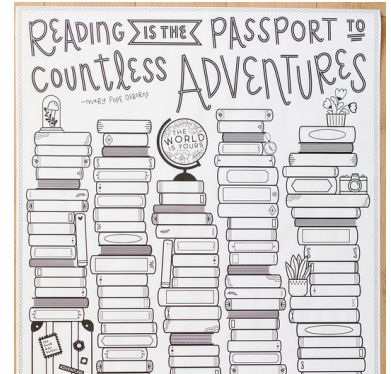 READING IS THE PASSPORT TO
COUNTLESS ADVENTURES
-MARY POPE OSBORNE
THE
WORLD
IS YOURS